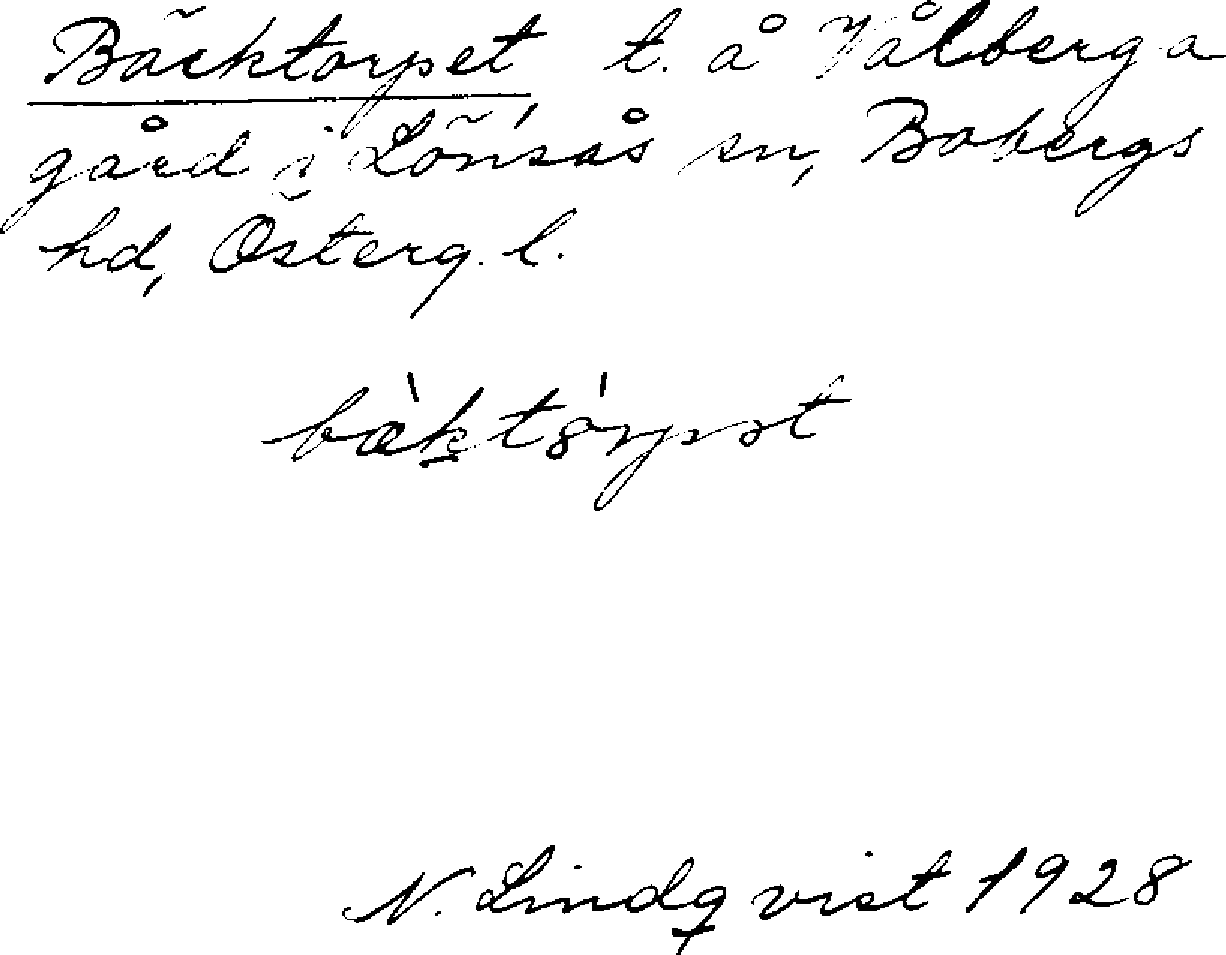 Bäcktorpet t. å Vålberga
gård i Lönsås sn, Bobergs
hd, Österg. l.
bæ̀którpət
N. Lindqvist 1928